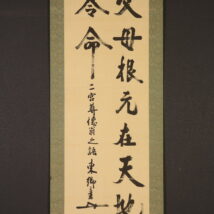 父母根元在天地
令命
二宮尊徳翁之語 東郷書